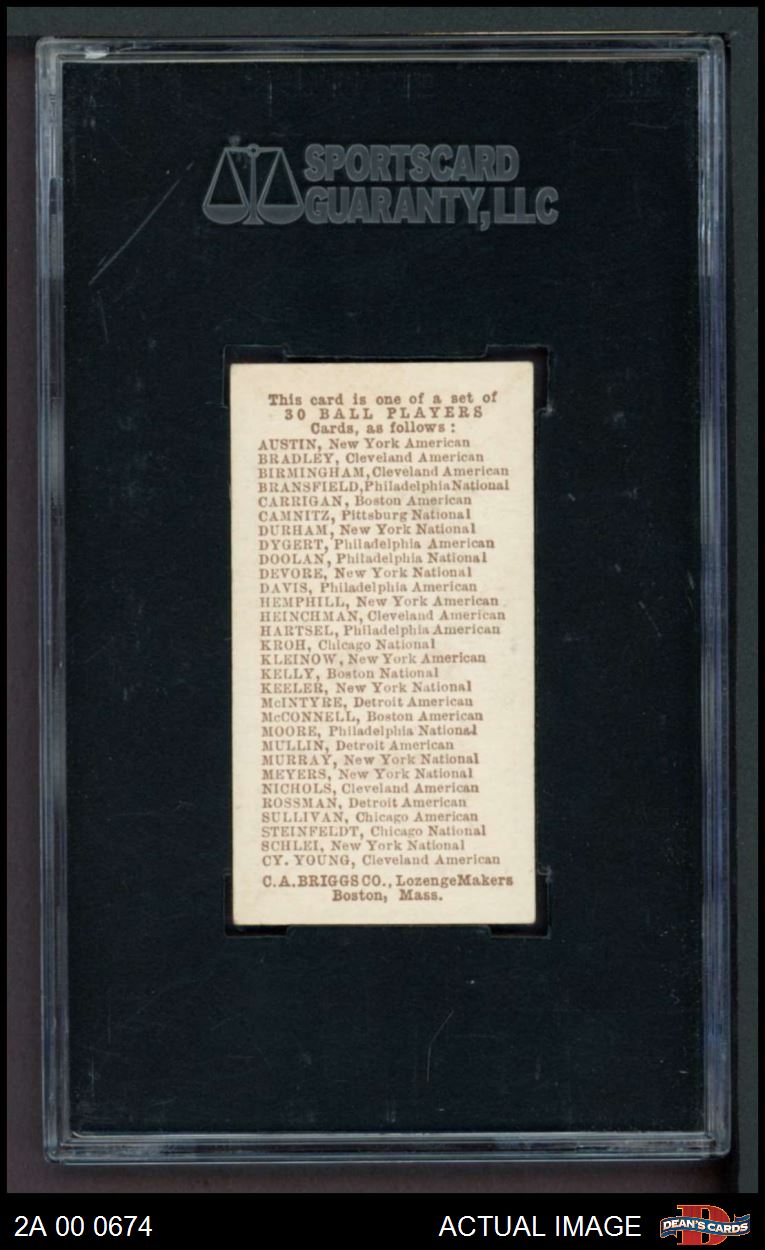 SPORTSCARD
GUARANTY, LLC
This card is one of a set of
30 BALL PLAYERS
Cards, as follows :
AUSTIN, New York American
BRADLEY, Cleveland American
BIRMINGHAM, Cleveland American
BRANSFIELD, Philadelphia National
CARRIGAN, Boston American
CAMNITZ, Pittsburg National
DURHAM, New York National
DYGERT, Philadelphia American
DOOLAN, Philadelphia National
DEVORE, New York National
DAVIS, Philadelphia American
HEMPHILL, New York American
HEINCHMAN, Cleveland American
HARTSEL, Philadelphia American
KROH, Chicago National
KLEINOW, New York American
KELLY, Boston National
KEELER, New York National
McINTYRE, Detroit American
McCONNELL, Boston American
MOORE, Philadelphia National
MULLIN, Detroit American
MURRAY, New York National
MEYERS, New York National
NICHOLS, Cleveland American
ROSSMAN, Detroit American
SULLIVAN, Chicago American
STEINFELDT, Chicago National
SCHLEI, New York National
CY. YOUNG, Cleveland American
C. A. BRIGGS CO., Lozenge Makers
Boston, Mass.
2A 00 0674
ACTUAL IMAGE
DEAN'S CARDS